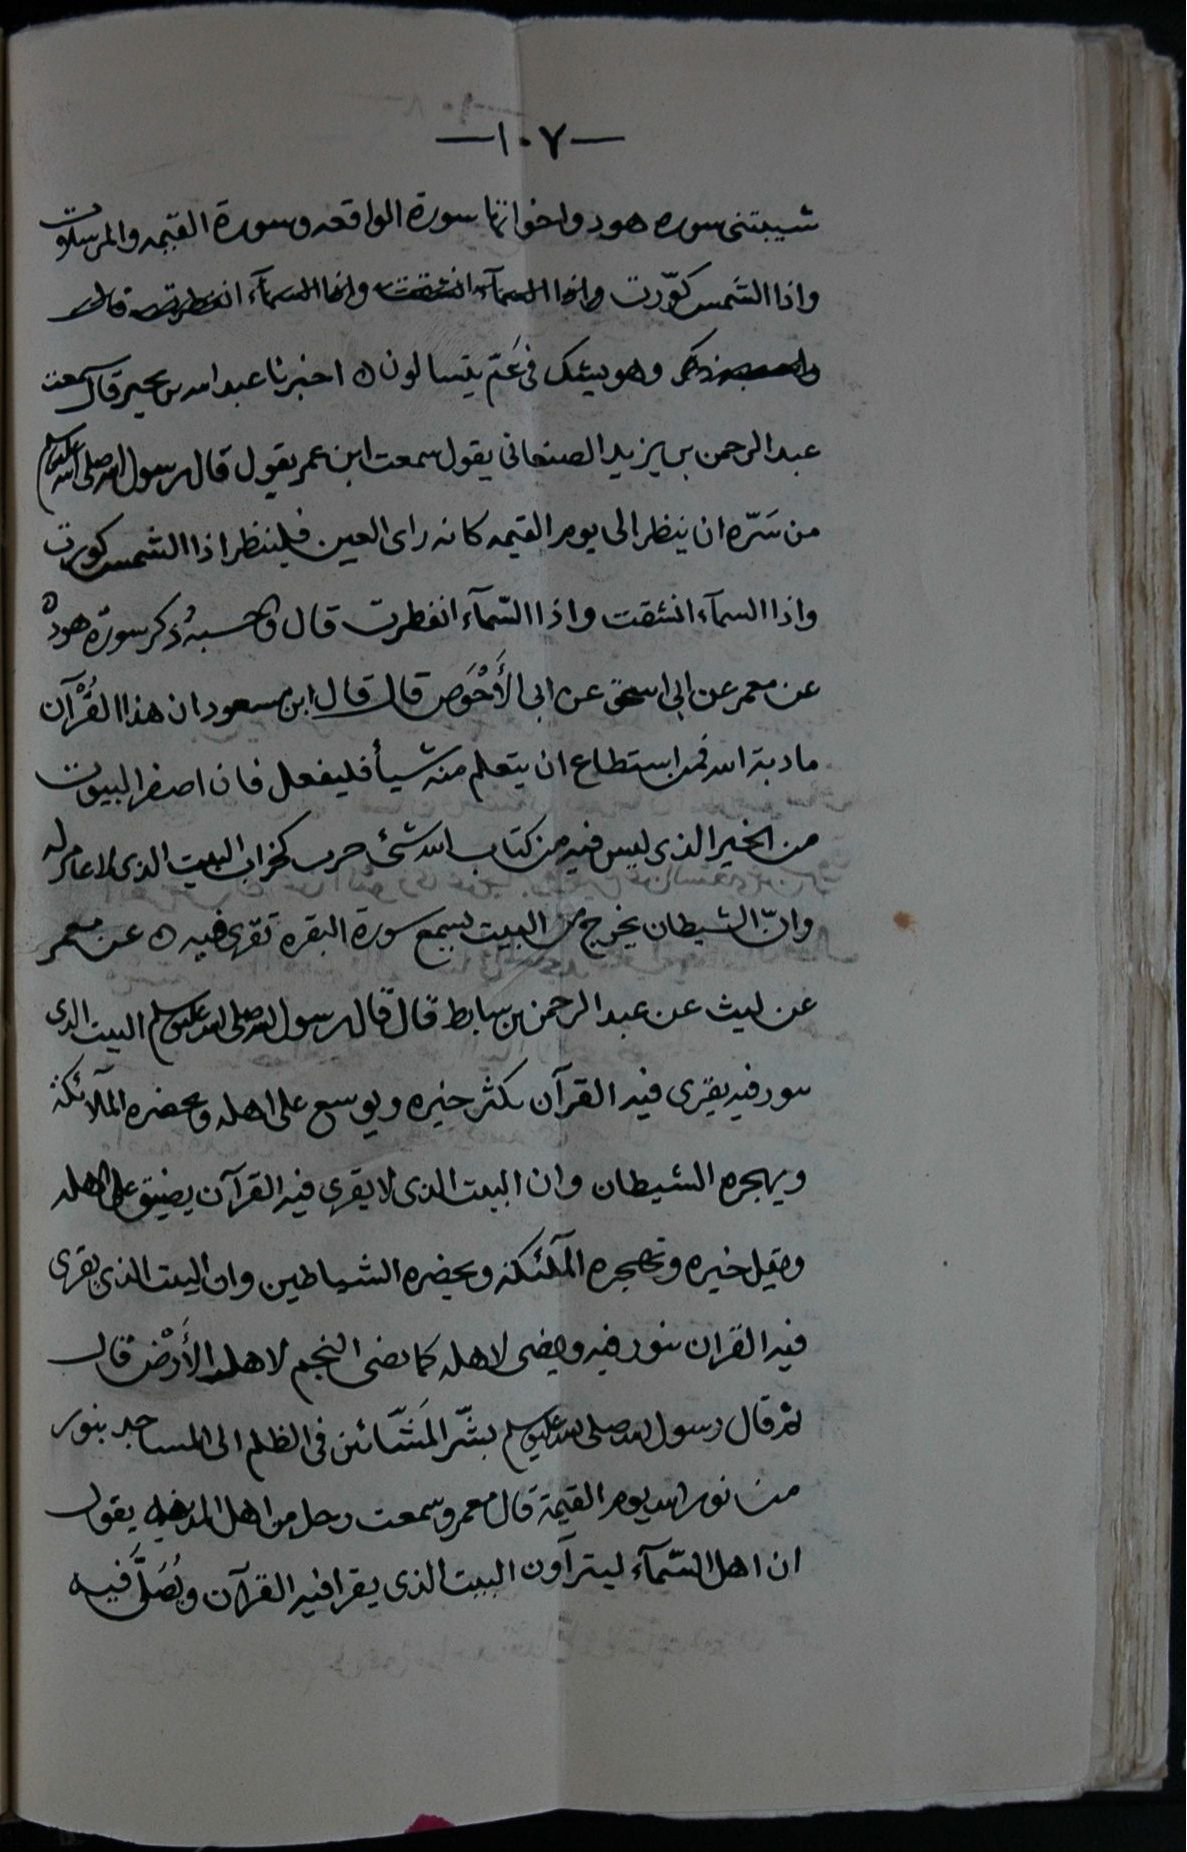 —١٠٧—
شيبتنى سوره هود واخواتها سورة الواقعه وسورة القيمه والمرسلات
واذا الشمس كوّرت واذا السمآء انشقت واذا السمآء انفطرت قال
وهو يشك فى عَمّ يتسالون ه اخبرنا عبد الله بن بحير قال سمعت
عبد الرحمن بن يزيد الصنعانى يقول سمعت ابن عمر يقول قال رسول الله صلى الله عليه وسلم
من سَرّه ان ينظر الى يوم القيمه كانه راى العين فلينظر اذا الشمس كورت
واذا السمآء انشقت واذا السّمآء انفطرت قال واحسبهُ ذكر سورة هود ه
عن معمر عن ابى اسحق عن ابى الأَحْوَص قال قال ابن مسعود ان هذا القُرْآن
مادبة الله فمن استطاع ان يتعلم منه شيأ فليفعل فان اصفر البيوت
من الخير الذى ليس فيه من كتاب الله شئ خرب كخراب البيت الذى لا عامر له
وانّ الشيطان يخرج من البيت يسمع سورة البقره تقرى فيه ه عن معمر
عن ليث عن عبد الرحمن بن سابط قال قال رسول الله صلى الله عليه وسلم البيت الذى
سور فيه يقرى فيه القرآن يكثر خيره ويوسع على اهله ويحضره الملآئكة
ويهجره الشيطان وان البيت الذى لا يقرى فيه القرآن يضيق على اهله
ويقل خيره وتهجره الملآئكة ويحضره الشياطين وان البيت الذى يقرى
فيه القران ينور فيه ويضى لاهله كما يضى النجم لاهل الأَرْض قال
ثم قال رسول الله صلى الله عليه وسلم بشّر المَشّائين فى الظلم الى المساجد بنور
من نور الله يوم القيمة قال معمر وسمعت رجل من اهل المدينه يقول
ان اهل السّمآء ليترآون البيت الذى يقرا فيه القرآن ويُصَلَّى فيه